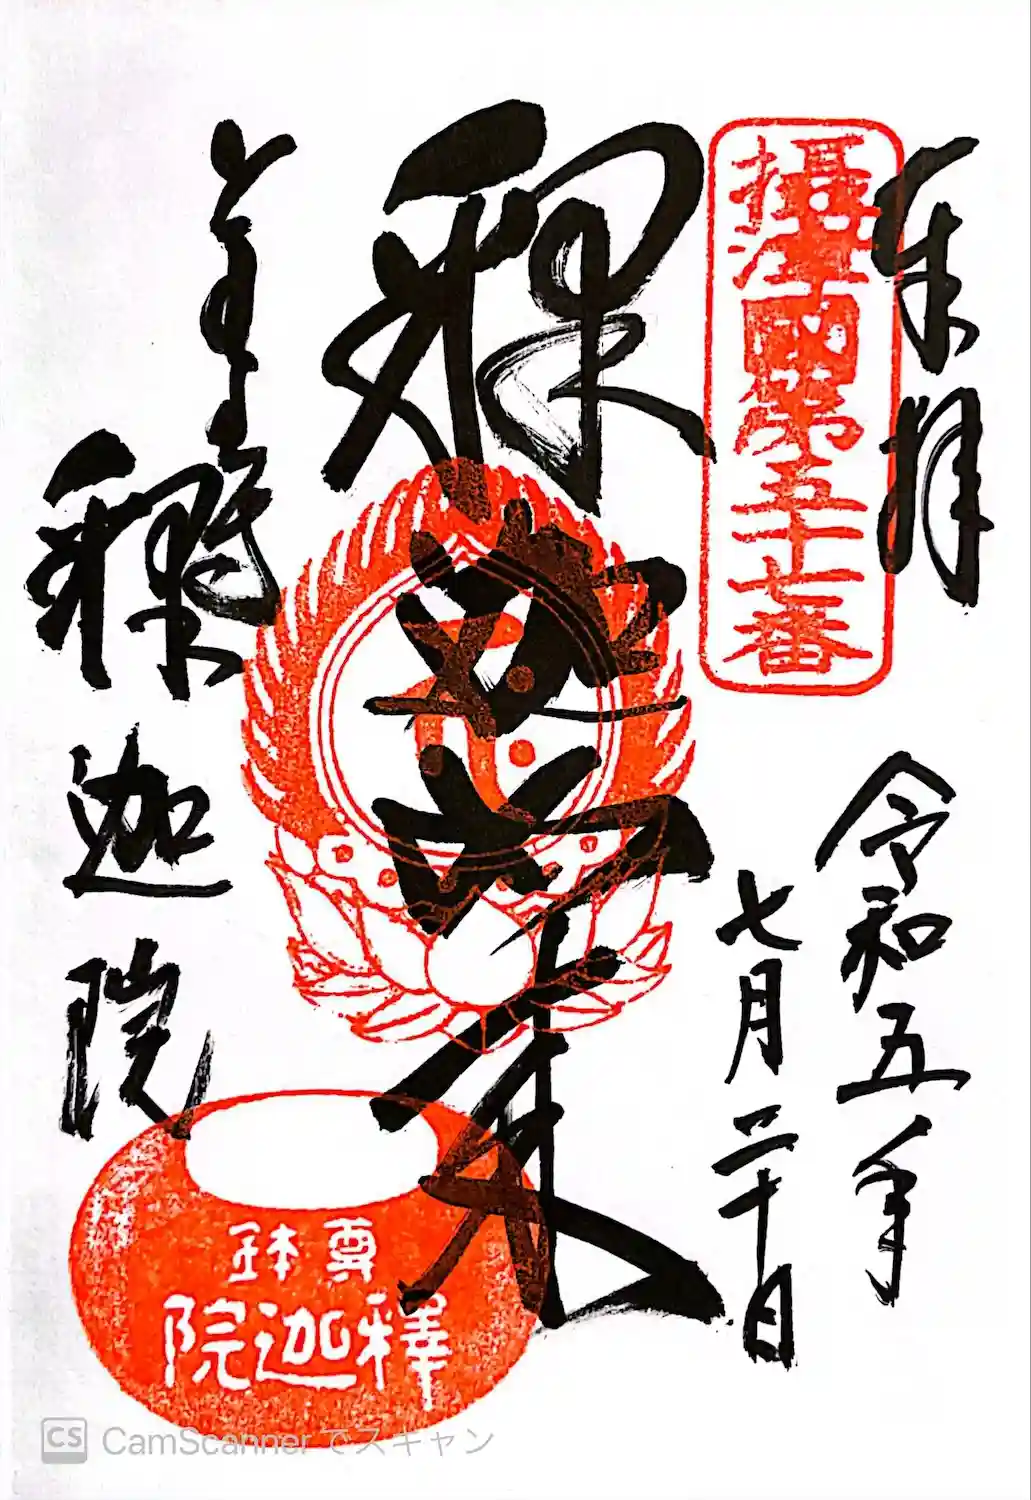 奉拝
攝津國第五十七番
令和五年
七月二十日
釈迦如来
釋迦院
尊鉢
釋迦院
CS CamScanner でスキャン